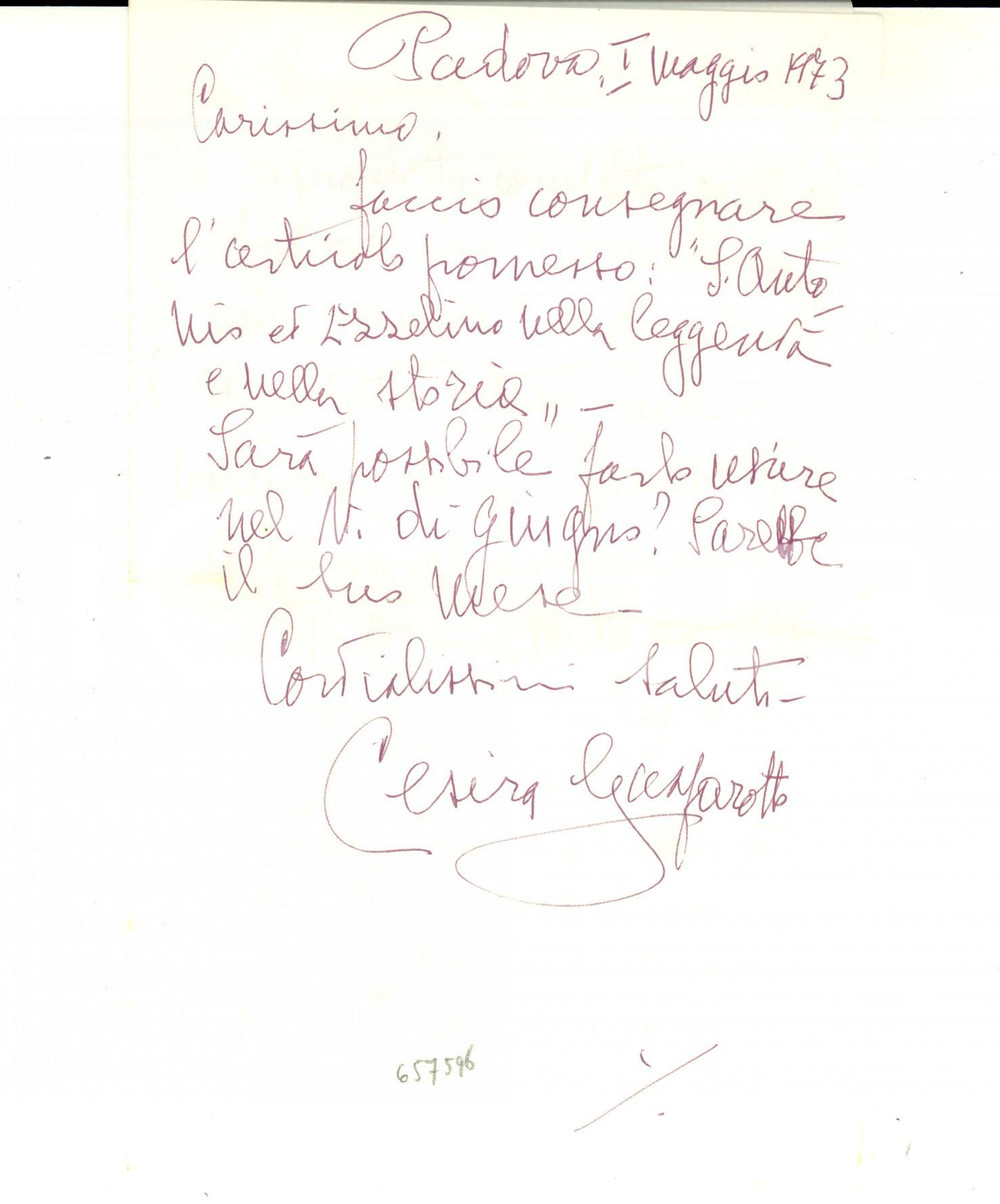 Padova, I Maggio 1973
Carissimo,
faccio consegnare
l'articolo promesso: "S. Anto
nio ed Ezzelino nella leggenda
e nella storia„ –
Sarà possibile farlo uscire
nel N. di giugno? Sarebbe
il suo mese –
Cordialissimi saluti –
Cesira Gasparotto
657596